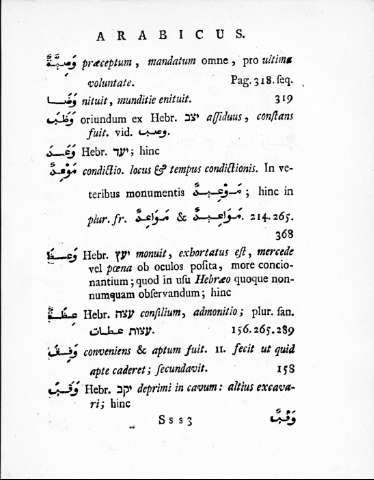 ARABICUS.
وَصِيَّةٌ præceptum, mandatum omne, pro ultima
voluntate. Pag. 318. seq.
nituit, munditie enituit. 319
وَظَبَ oriundum ex Hebr. יצב assiduus, constans
fuit. vid. وصب.
وَعَدَ Hebr. יעד; hinc
مَوْعِدٌ condictio. locus & tempus condictionis. In ve-
teribus monumentis ; hinc in
plur. fr. & . 214. 265.
368
وَعَظَ Hebr. יעץ monuit, exhortatus est, mercede
vel pœna ob oculos posita, more concio-
nantium; quod in usu Hebræo quoque non-
numquam observandum; hinc
عِظَةٌ Hebr. עצה consilium, admonitio; plur. san.
עצות عظات. 156. 265. 289
وَفِقَ conveniens & aptum fuit. II. fecit ut quid
apte caderet; secundavit. 158
وَقَبَ Hebr. יקב deprimi in cavum: altius excava-
ri; hinc
Sss3 وَقْبٌ